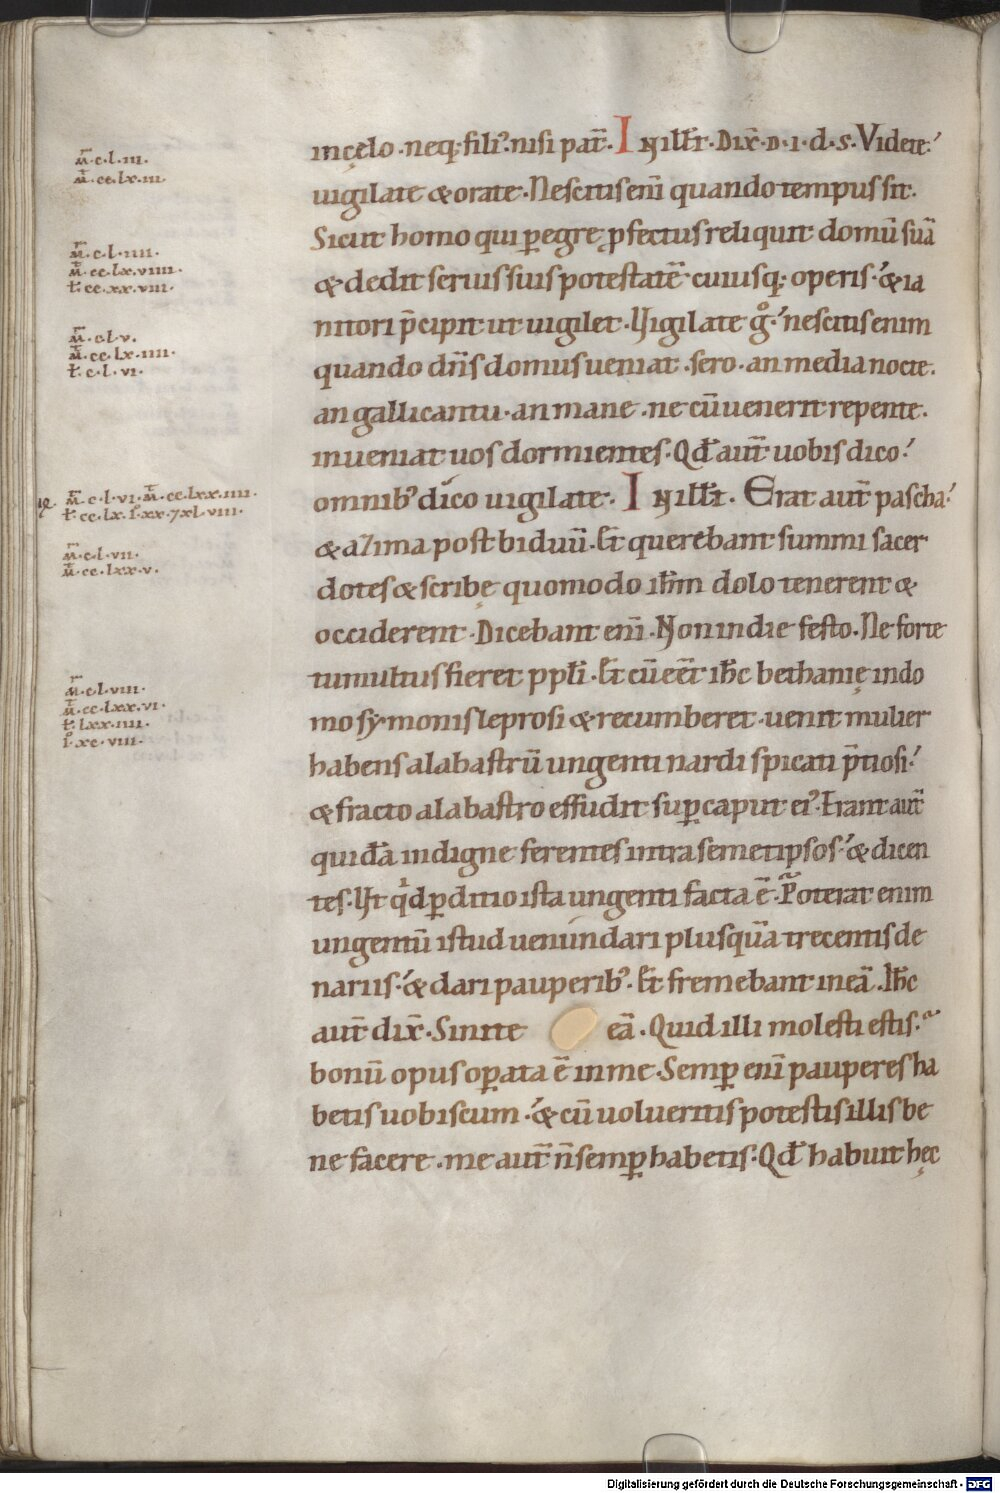 m̄·c·l·iii·
m̄·cc·lx·iii·
m̄·c·l·iiii·
m̄·cc·lx·viiii·
ł·cc·xx·viii·
m̄·c·l·v·
m̄·cc·lx·iiii·
ł·c·l·vi·
m̄·c·l·vi·m̄·cc·lxx·iiii·
ł·cc·lx·
m̄·c·l·vii·
m̄·cc·lxx·v·
m̄·c·l·viii·
m̄·cc·lxx·vi·
ł·lxx·iiii·
xc·viii·
in cęlo · neq; fili᾿ · nisi pat̄ · In ill̄t · Dix̄ · D · I · d · s · Videte ·
uigilate & orate · Nescitis enī quando tempus sit ·
Sicut homo qui p̱egrę p̱fectus reliquit domū suā
& dedit seruis suis potestatē cuiusq; operis · & ia
nitori p̄cipit ut uigilet · Uigilate g̊ · nescitis enim
quando dn̄s domus ueniat · sero · an media nocte ·
an galli cantu · an mane · ne cū uenerit repente ·
inueniat uos dormientes · Qđ aut̄ uobis dico ·
omnib᾿ dico uigilate · In ill̄t · Erat aut̄ pascha ·
& azima post biduū · Et querebant summi sacer
dotes & scribę quomodo ih̄m dolo tenerent &
occiderent · Dicebant enī · Non in die festo · Ne forte
tumultus fieret pp̄li · Et cū eēt ih̄c bethanię in do
mo symonis leprosi & recumberet · uenit mulier
habens alabastrū ungenti nardi spicati p̄tiosi ·
& fracto alabastro effudit sup̱ caput ei᾿ · Erant aut̄
quidā indigne ferentes intra semetipsos · & dicen
tes · Ut qͥd p̱ditio ista ungenti facta ē · Poterat enim
ungentū istud uenundari plusquā trecentis de
nariis · & dari pauperib᾿ · Et fremebant in eā · Ih̄c
aut̄ dix̄ · Sinite eā · Quid illi molesti estis ·
bonū opus op̱ata ē in me · Semp̱ enī pauperes ha
betis uobiscum · & cū uolueritis potestis illis be
ne facere · me aut̄ n̄ semp̱ habetis · Qđ habuit hęc
Digitalisierung gefördert durch die Deutsche Forschungsgemeinschaft - DFG